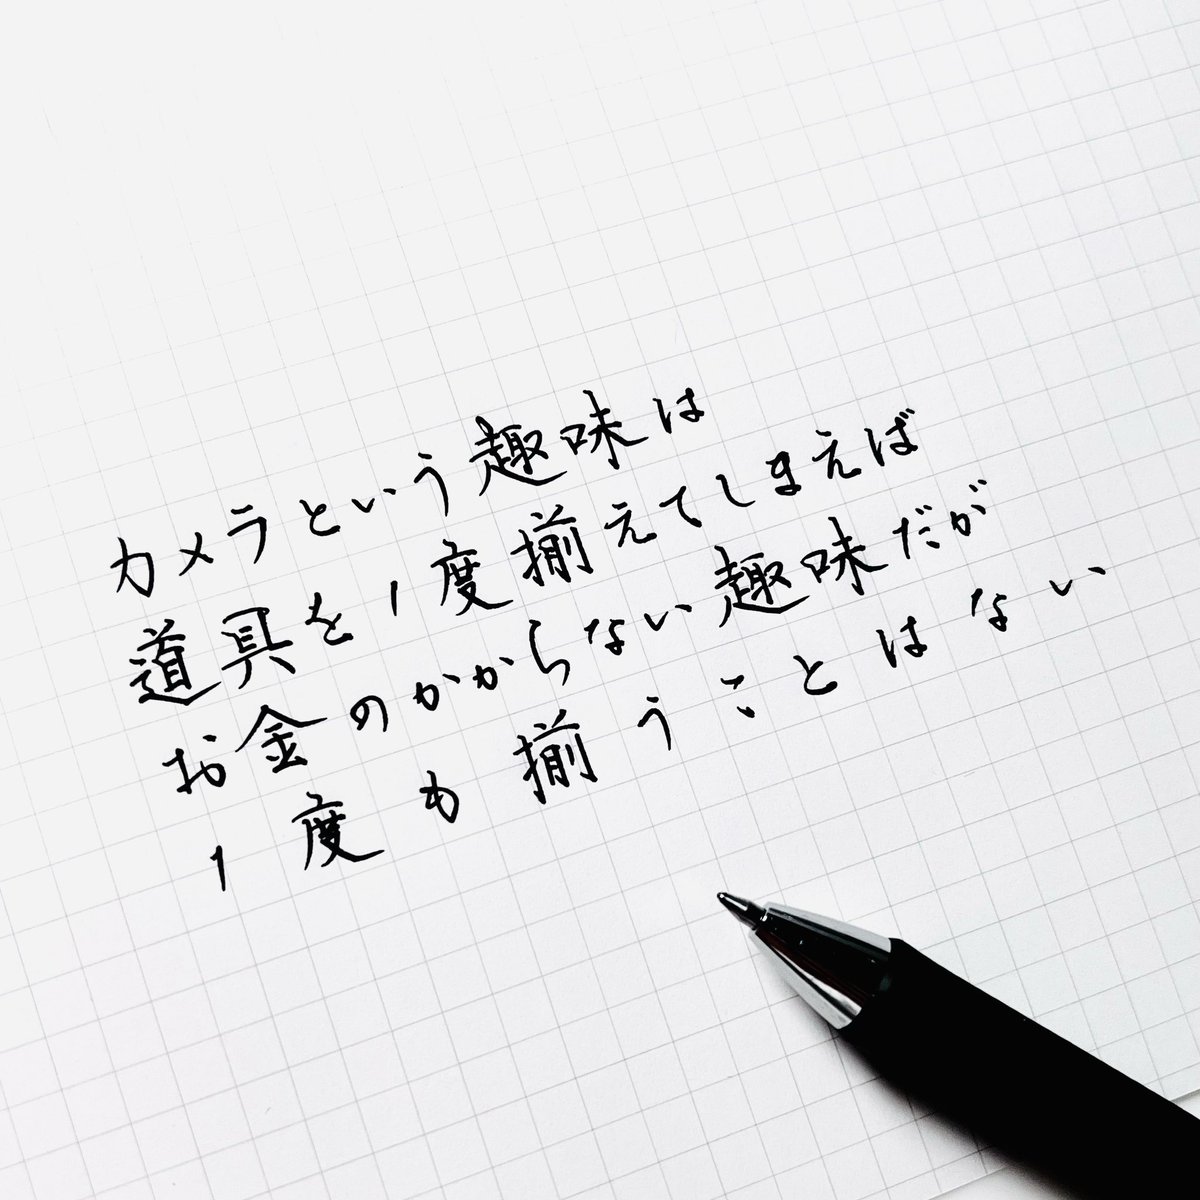 カメラという趣味は
道具を1度揃えてしまえば
お金のかからない趣味だが
1度も揃うことはない